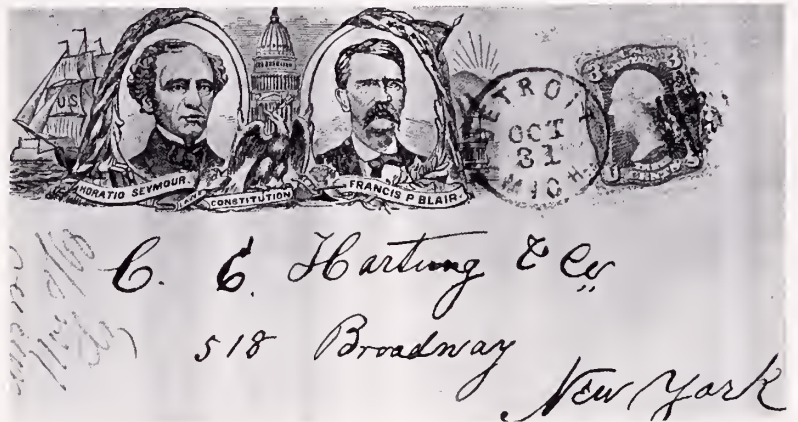 U S
HORATIO SEYMOUR.
CONSTITUTION
FRANCIS P BLAIR.
DETROIT
OCT
31
MICH.
3 3
C. C. Hartung & Co
518 Broadway
New York